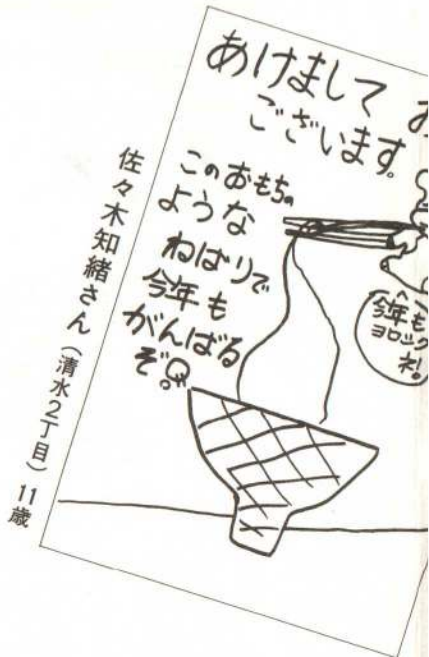 あけまして お
ございます。
このおもちの
ような
ねばりで
今年も
がんばる
ぞ。
今年も
ヨロシク
ネ!
佐々木知緒さん(清水2丁目)11歳